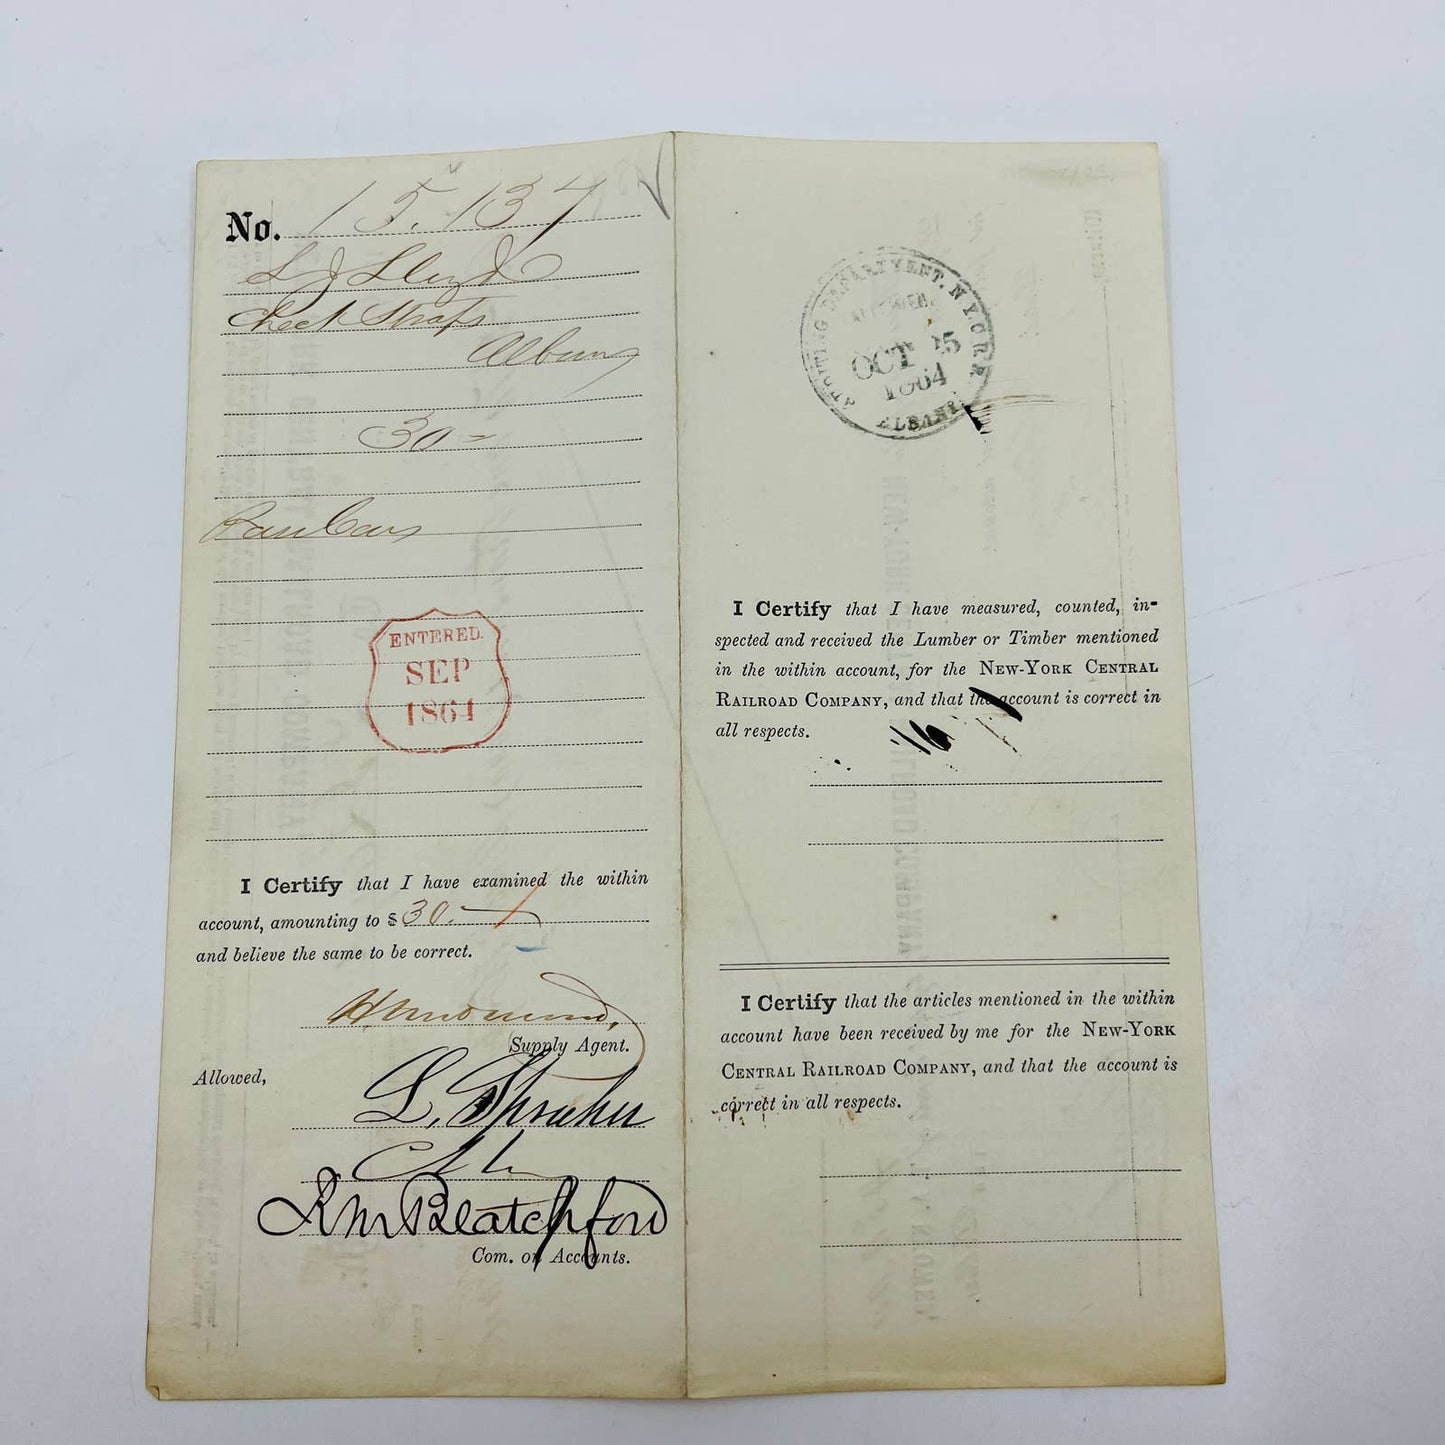 No. 15.137
L J Lloyd
Check Straps
Albany
30=
ENTERED.
SEP
1864
I Certify that I have examined the within
account, amounting to $ 30.—
and believe the same to be correct.
Supply Agent.
Allowed,
R M Blatchford
Com. on Accounts.
DEPARTMENT. N.Y.C.R.R.
OCT 5
1864
ALBANY
I Certify that I have measured, counted, in-
spected and received the Lumber or Timber mentioned
in the within account, for the NEW-YORK CENTRAL
RAILROAD COMPANY, and that the account is correct in
all respects.
I Certify that the articles mentioned in the within
account have been received by me for the NEW-YORK
CENTRAL RAILROAD COMPANY, and that the account is
correct in all respects.